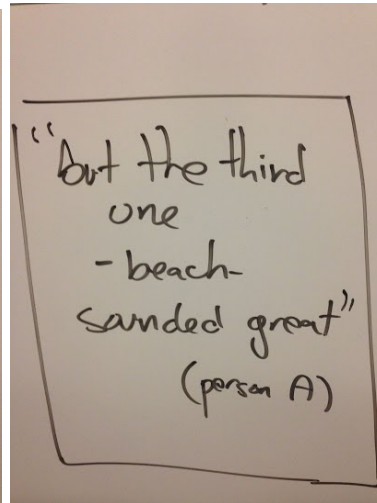 "but the third
one
- beach-
sounded great"
(person A)